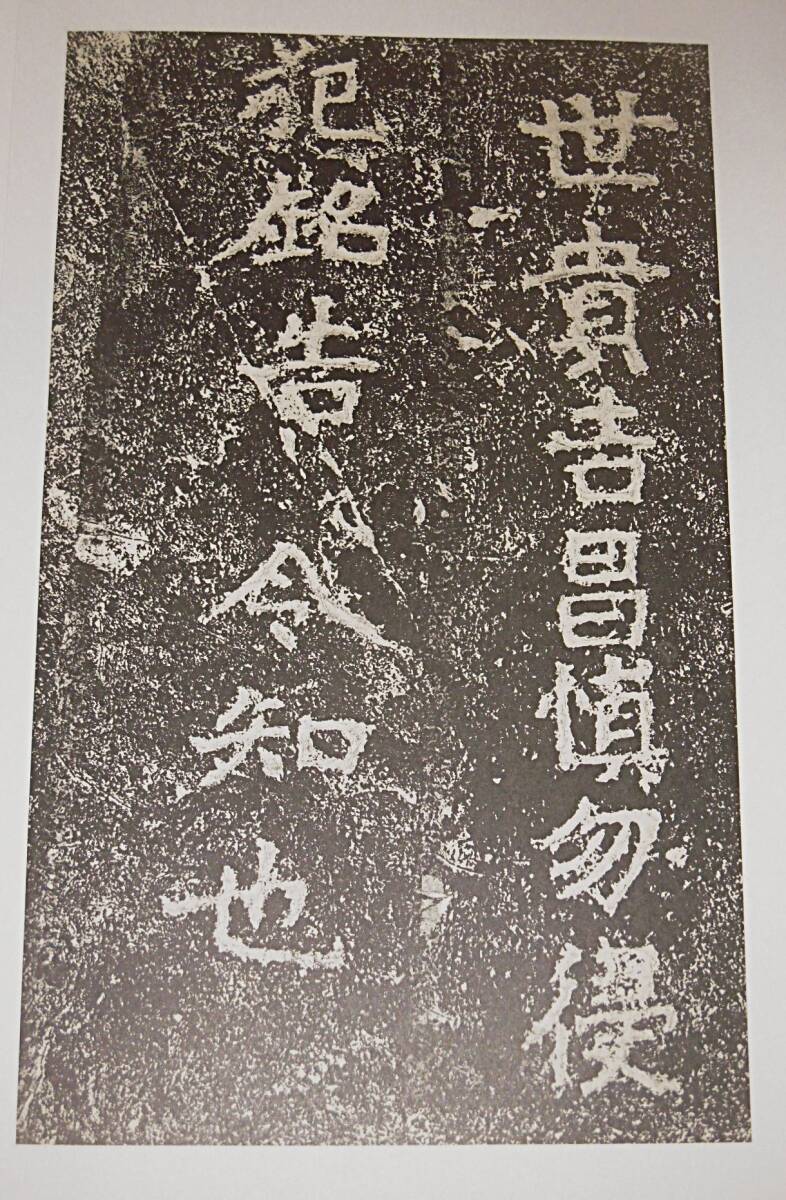 世貴吉昌慎勿侵
犯銘告令知也